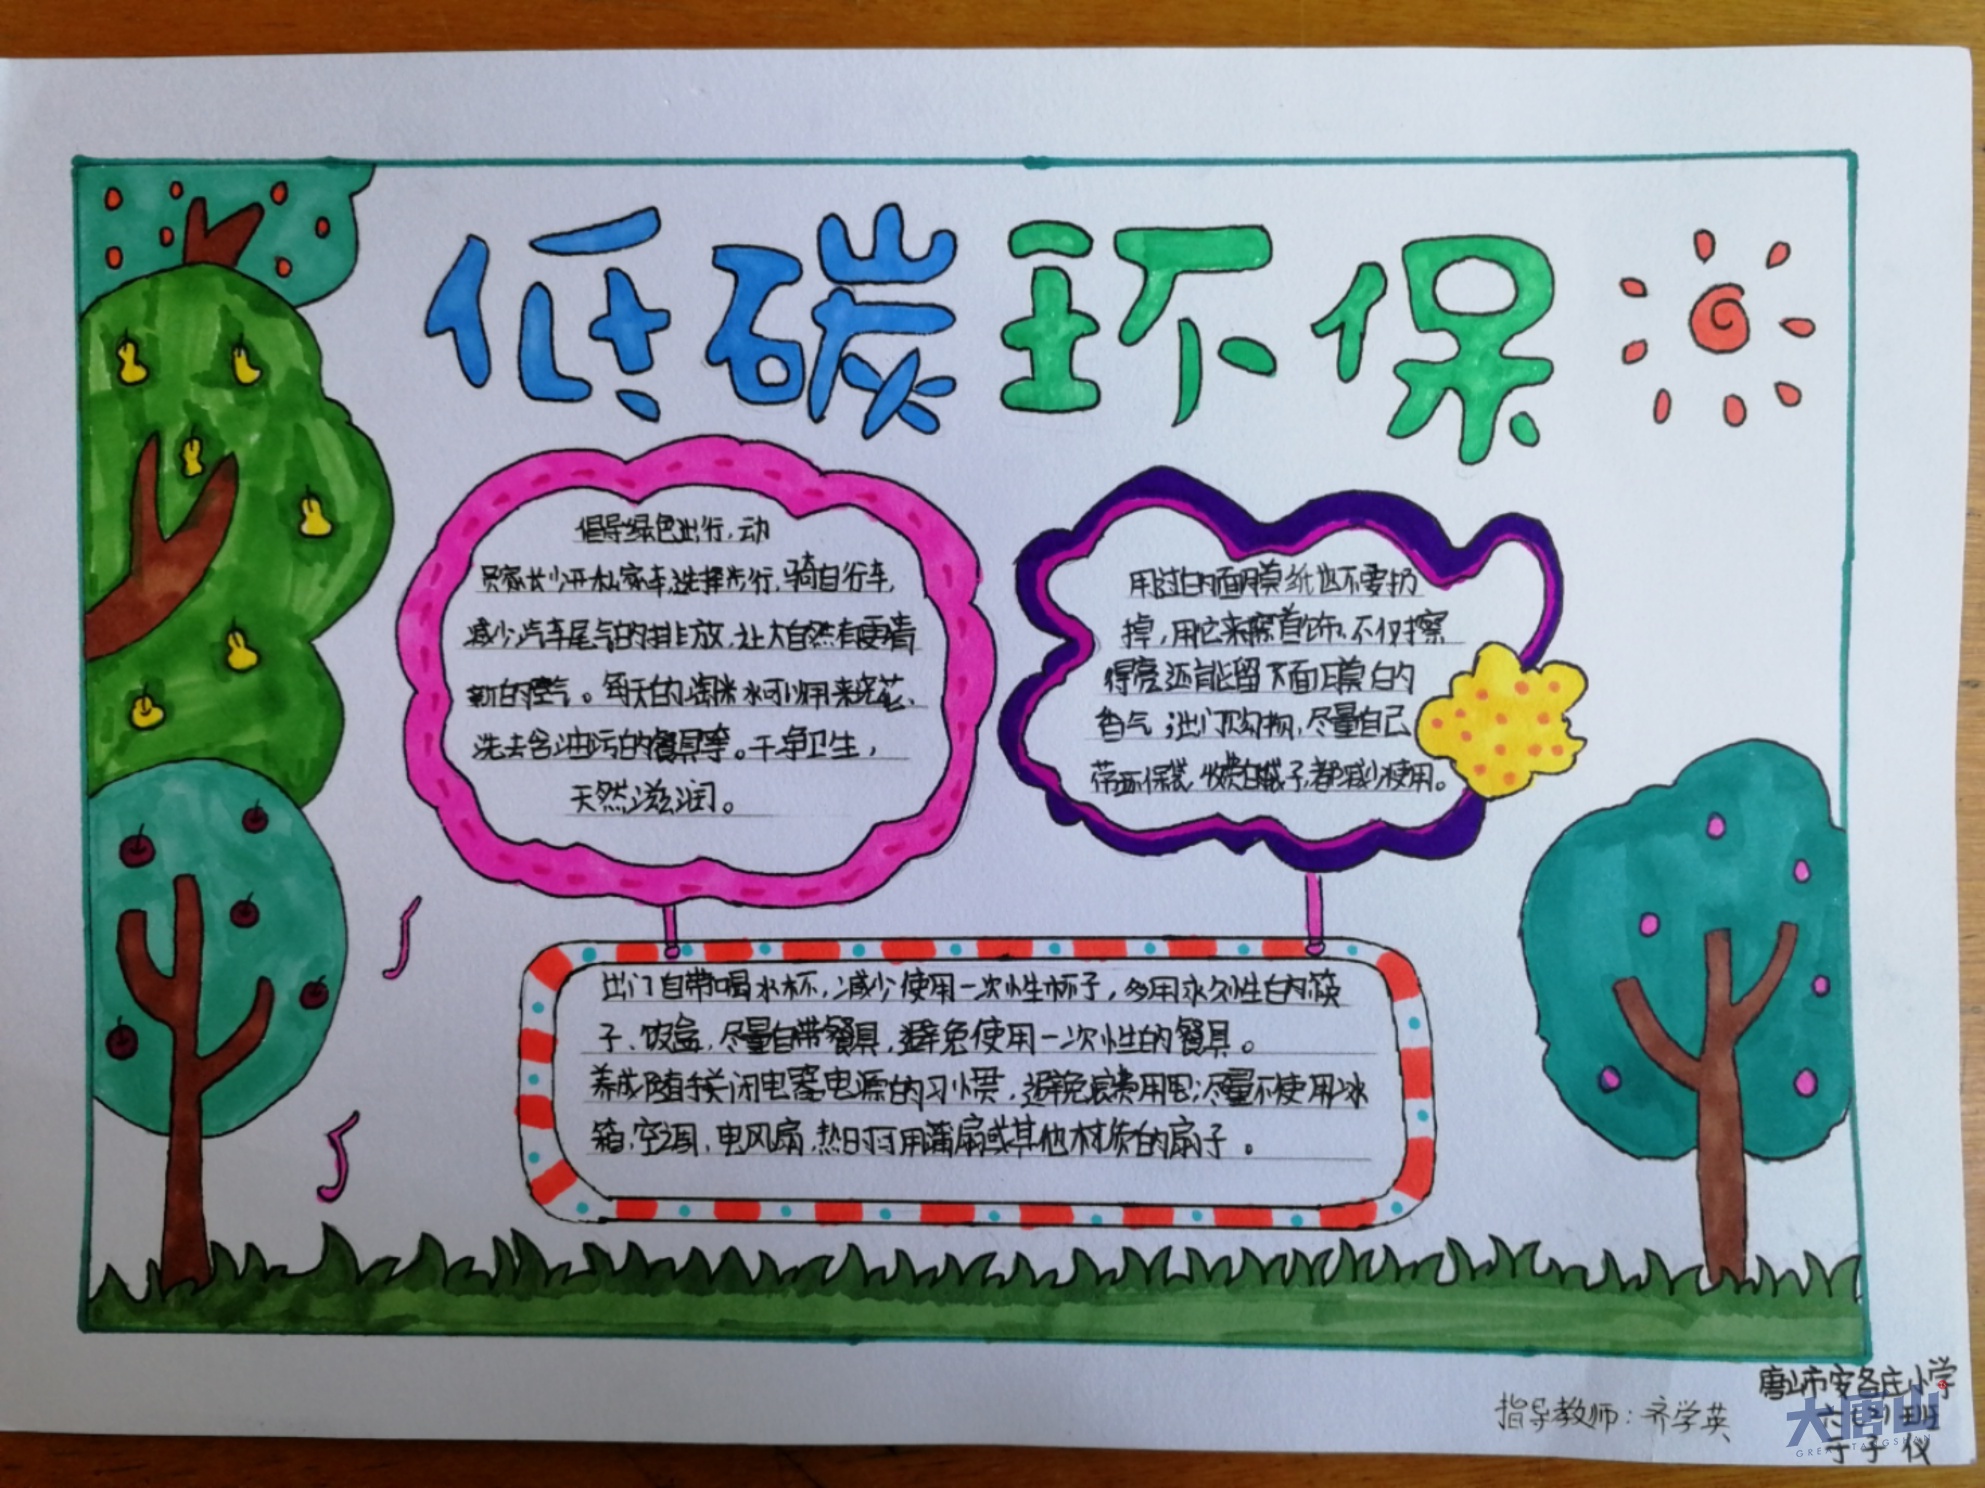 低碳环保
倡导绿色出行,动
员家长少开私家车,选择步行,骑自行车,
减少汽车尾气的排放,让大自然有更清
新的空气。每天的淘米水可以用来浇花、
洗去含油污的餐具等。干净卫生,
天然滋润。
用过的面膜纸也不要扔
掉,用它来擦首饰,不仅擦
得亮还能留下面膜的
香气;出门购物,尽量自己
带环保袋,收费的袋子,都减少使用。
出门自带喝水杯,减少使用一次性杯子,多用永久性的筷
子、饭盒,尽量自带餐具,避免使用一次性的餐具。
养成随手关闭电器电源的习惯,避免浪费用电;尽量不使用冰
箱,空调,电风扇,热时可用蒲扇或其他材质的扇子。
唐山市安各庄小学
指导教师:齐学英
大唐山
GREAT TANGSHAN
于子仪